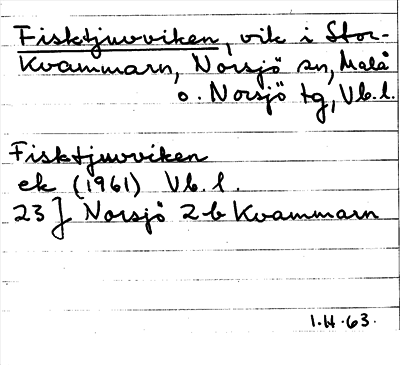 Fisktjuvviken, vik i Stor-
Kvammarn, Norsjö sn, Malå
o. Norsjö tg, Vb.l.
Fisktjuvviken
ek (1961) Vb.l.
23 J Norsjö 2b Kvammarn
1.H.63.